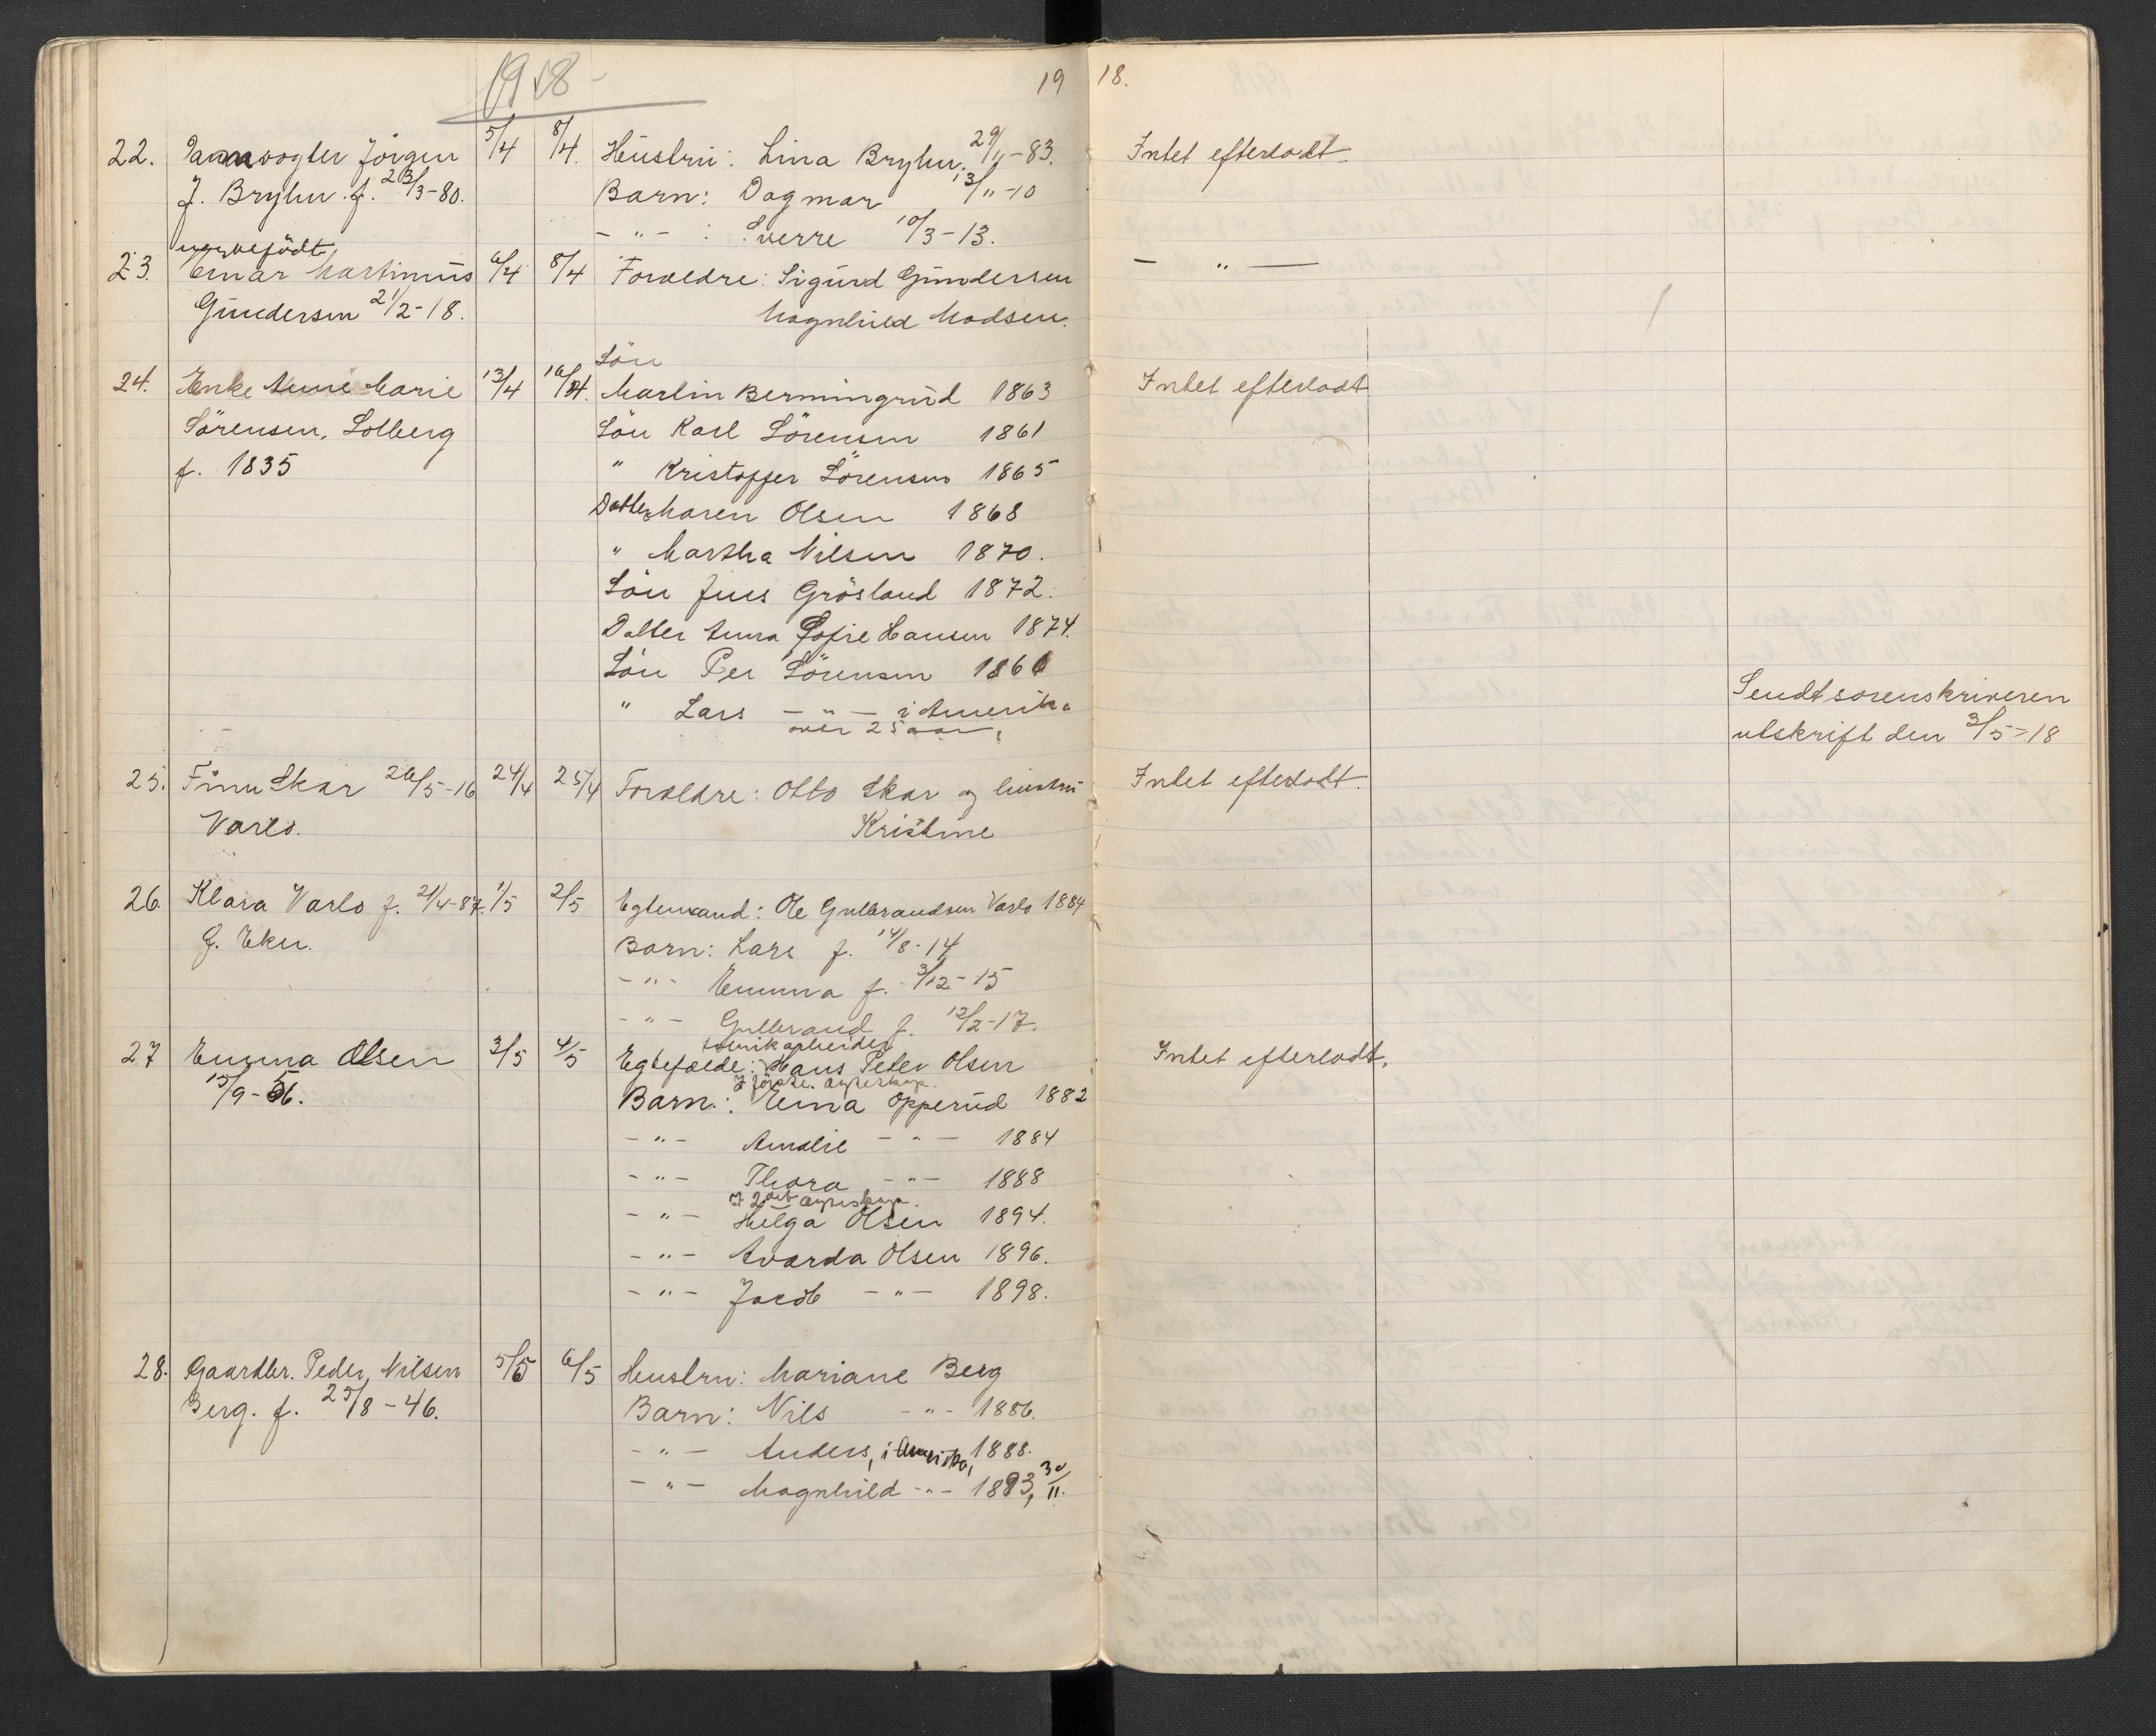 1918
19 18.
22. Damvogter Jörgen 5/4 8/4. Hustru: Lina Bryhn. 29/11-83. Intet efterladt.
J. Bryhn. f. 23/3-80. Barn: Dagmar 13/11-10
- " - : Sverre 10/3-13.
uægtefödt
23. Einar Martinius 6/4 8/4 Foræeldre: Sigurd Gundersen - " -
Gundersen 21/2-18. Magnhild Madsen.
Sön
24. Enke Anne Marie 13/4 16/4. Martin Bermingrud 1863 Intet efterladt
Sörensen, Solberg Sön Karl Sörensen 1861
f. 1835 " Kristoffer Sörensen 1865
Datter Maren Olsen 1868
" Martha Nilsen 1870.
Sön Jens Grösland 1872.
Datter Anna Sofie Hansen 1874.
Sön Per Sörensen 1860
" Lars - " - i Amerika Sendt sorenskriveren
over 25 aar, utskrift den 3/5-18
25. Finn Skar 26/5-16 24/4 25/4 Foræeldre: Otto Skar og hustru Intet efterladt.
Varlo. Kristine
26. Klara Varlo f. 21/4-87. 1/5 2/5 Egtemand: Ole Gulbrandsen Varlo 1884
G. Eker. Barn: Lars f. 14/8-14
- " - Emma f. 3/12-15
- " - Gulbrand f. 12/2-17.
fabrikarbeider
27 Emma Olsen 3/5 4/5 Egtefælde: Hans Peter Olsen Intet efterladt.
15/9-56. I förste egteskap.
Barn: Erna Opperud 1882
- " - Amalie - " - 1884
- " - Thora - " - 1888
I 2det egteskap.
- " - Helga Olsen 1894.
- " - Avarda Olsen 1896.
- " - Jacob - " - 1898.
28. Gaardbr. Peder Nilsen 5/5 6/5 Hustru: Mariane Berg
Berg. f. 25/8-46. Barn: Nils - " - 1886.
- " - Anders, i Amerika, 1888.
- " - Magnhild - " - 1893, 30/11.